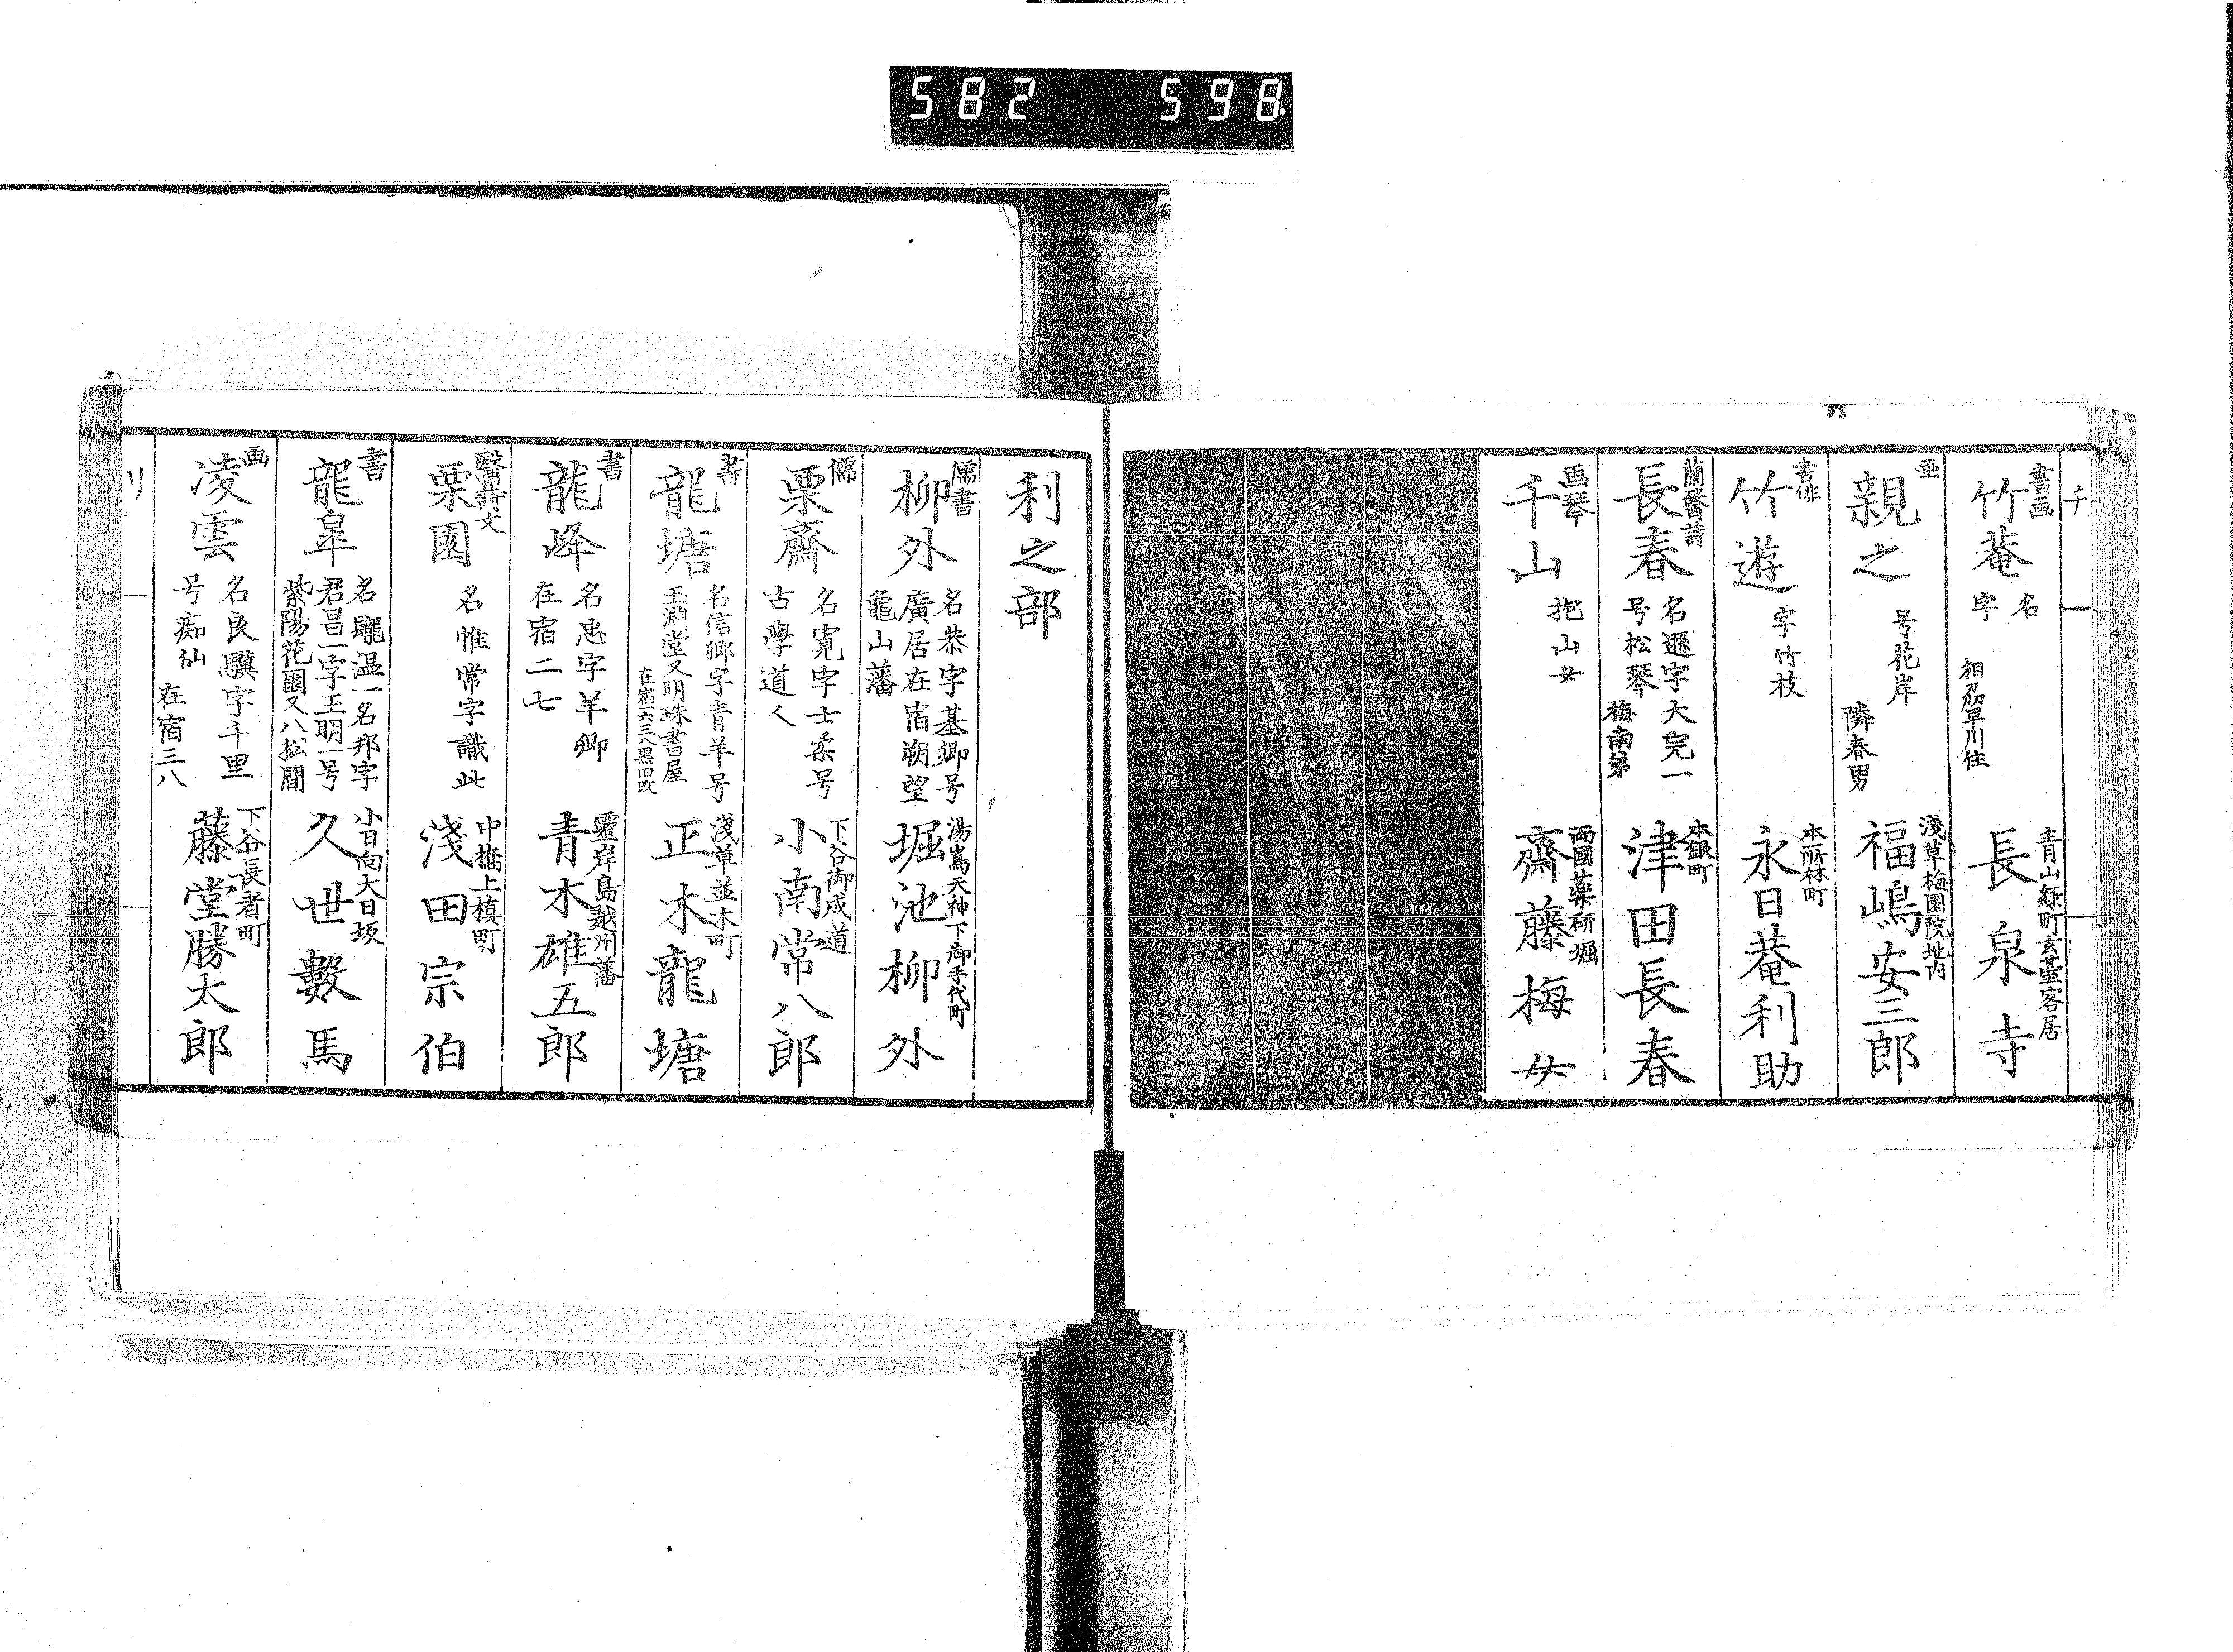 582 598
チ
書画
竹菴
名
字
相刕早川住
青山緑町玄臺客居
長泉寺
画
親之
号花岸
隣春男
淺草梅園院地内
福嶋安三郎
書俳
竹遊
字竹枝
本所林町
永日菴利助
蘭醫詩
長春
名遜字大完一
号松琴
梅南弟
本銀町
津田長春
画琴
千山
抱山女
両國薬研堀
齋藤梅女
利之部
儒書
柳外
名恭字基卿号
廣居在宿朔望
龜山藩
湯嶌天神下御手代町
堀池柳外
儒
栗齋
名寛字士柔号
古學道人
下谷御成道
小南常八郎
書
龍塘
名信郷字青羊号
玉淵堂又明珠書屋
在宿一六三八黒田改
淺草並木町
正木龍塘
書
龍峰
名忠字羊卿
在宿二七
靈岸島越州藩
青木雄五郎
醫詩文
栗園
名惟常字識此
中橋上槙町
淺田宗伯
書
龍皐
名龗温一名邦字
君昌一字玉明一号
紫陽花園又八松間
小日向大日坂
久世數馬
画
凌雲
名良驥字千里
号痴仙
在宿三八
下谷長者町
藤堂勝太郎
リ